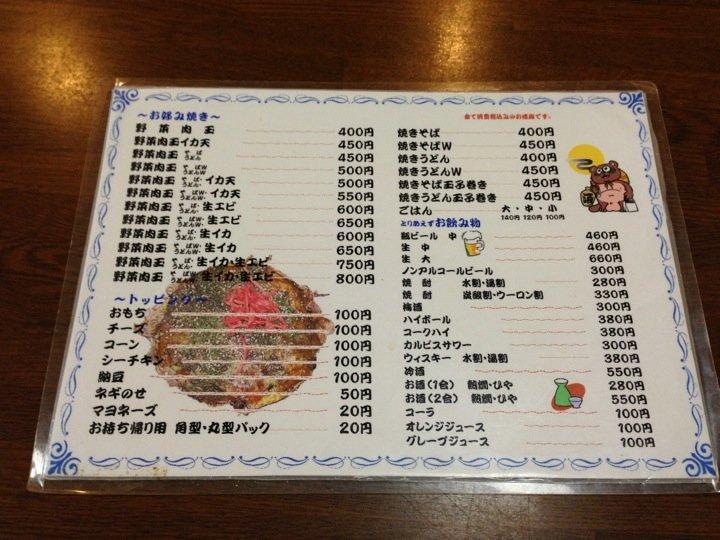 ～お好み焼き～
野菜肉玉 400円
野菜肉玉イカ天 450円
野菜肉玉 そば・うどん 450円
野菜肉玉 そばW・うどんW 500円
野菜肉玉 そば・うどん・イカ天 500円
野菜肉玉 そばW・うどんW・イカ天 550円
野菜肉玉 そば・うどん・生エビ 600円
野菜肉玉 そばW・うどんW・生エビ 650円
野菜肉玉 そば・うどん・生イカ 600円
野菜肉玉 そばW・うどんW・生イカ 650円
野菜肉玉 そば・うどん・生イカ・生エビ 750円
野菜肉玉 そばW・うどんW・生イカ・生エビ 800円
～トッピング～
おもち 100円
チーズ 100円
コーン 100円
シーチキン 100円
納豆 100円
ネギのせ 50円
マヨネーズ 20円
お持ち帰り用 角型・丸型パック 20円
全て消費税込みのお値段です。
焼きそば 400円
焼きそばW 450円
焼きうどん 400円
焼きうどんW 450円
焼きそば玉子巻き 450円
焼きうどん玉子巻き 450円
ごはん 大・中・小
140円 120円 100円
とりあえずお飲み物
瓶ビール 中 460円
生 中 460円
生 大 660円
ノンアルコールビール 300円
焼酎 水割・湯割 280円
焼酎 炭酸割・ウーロン割 330円
梅酒 300円
ハイボール 380円
コークハイ 380円
カルピスサワー 300円
ウィスキー 水割・湯割 380円
冷酒 550円
お酒(1合) 熱燗・ひや 280円
お酒(2合) 熱燗・ひや 550円
コーラ 100円
オレンジジュース 100円
グレープジュース 100円
酒